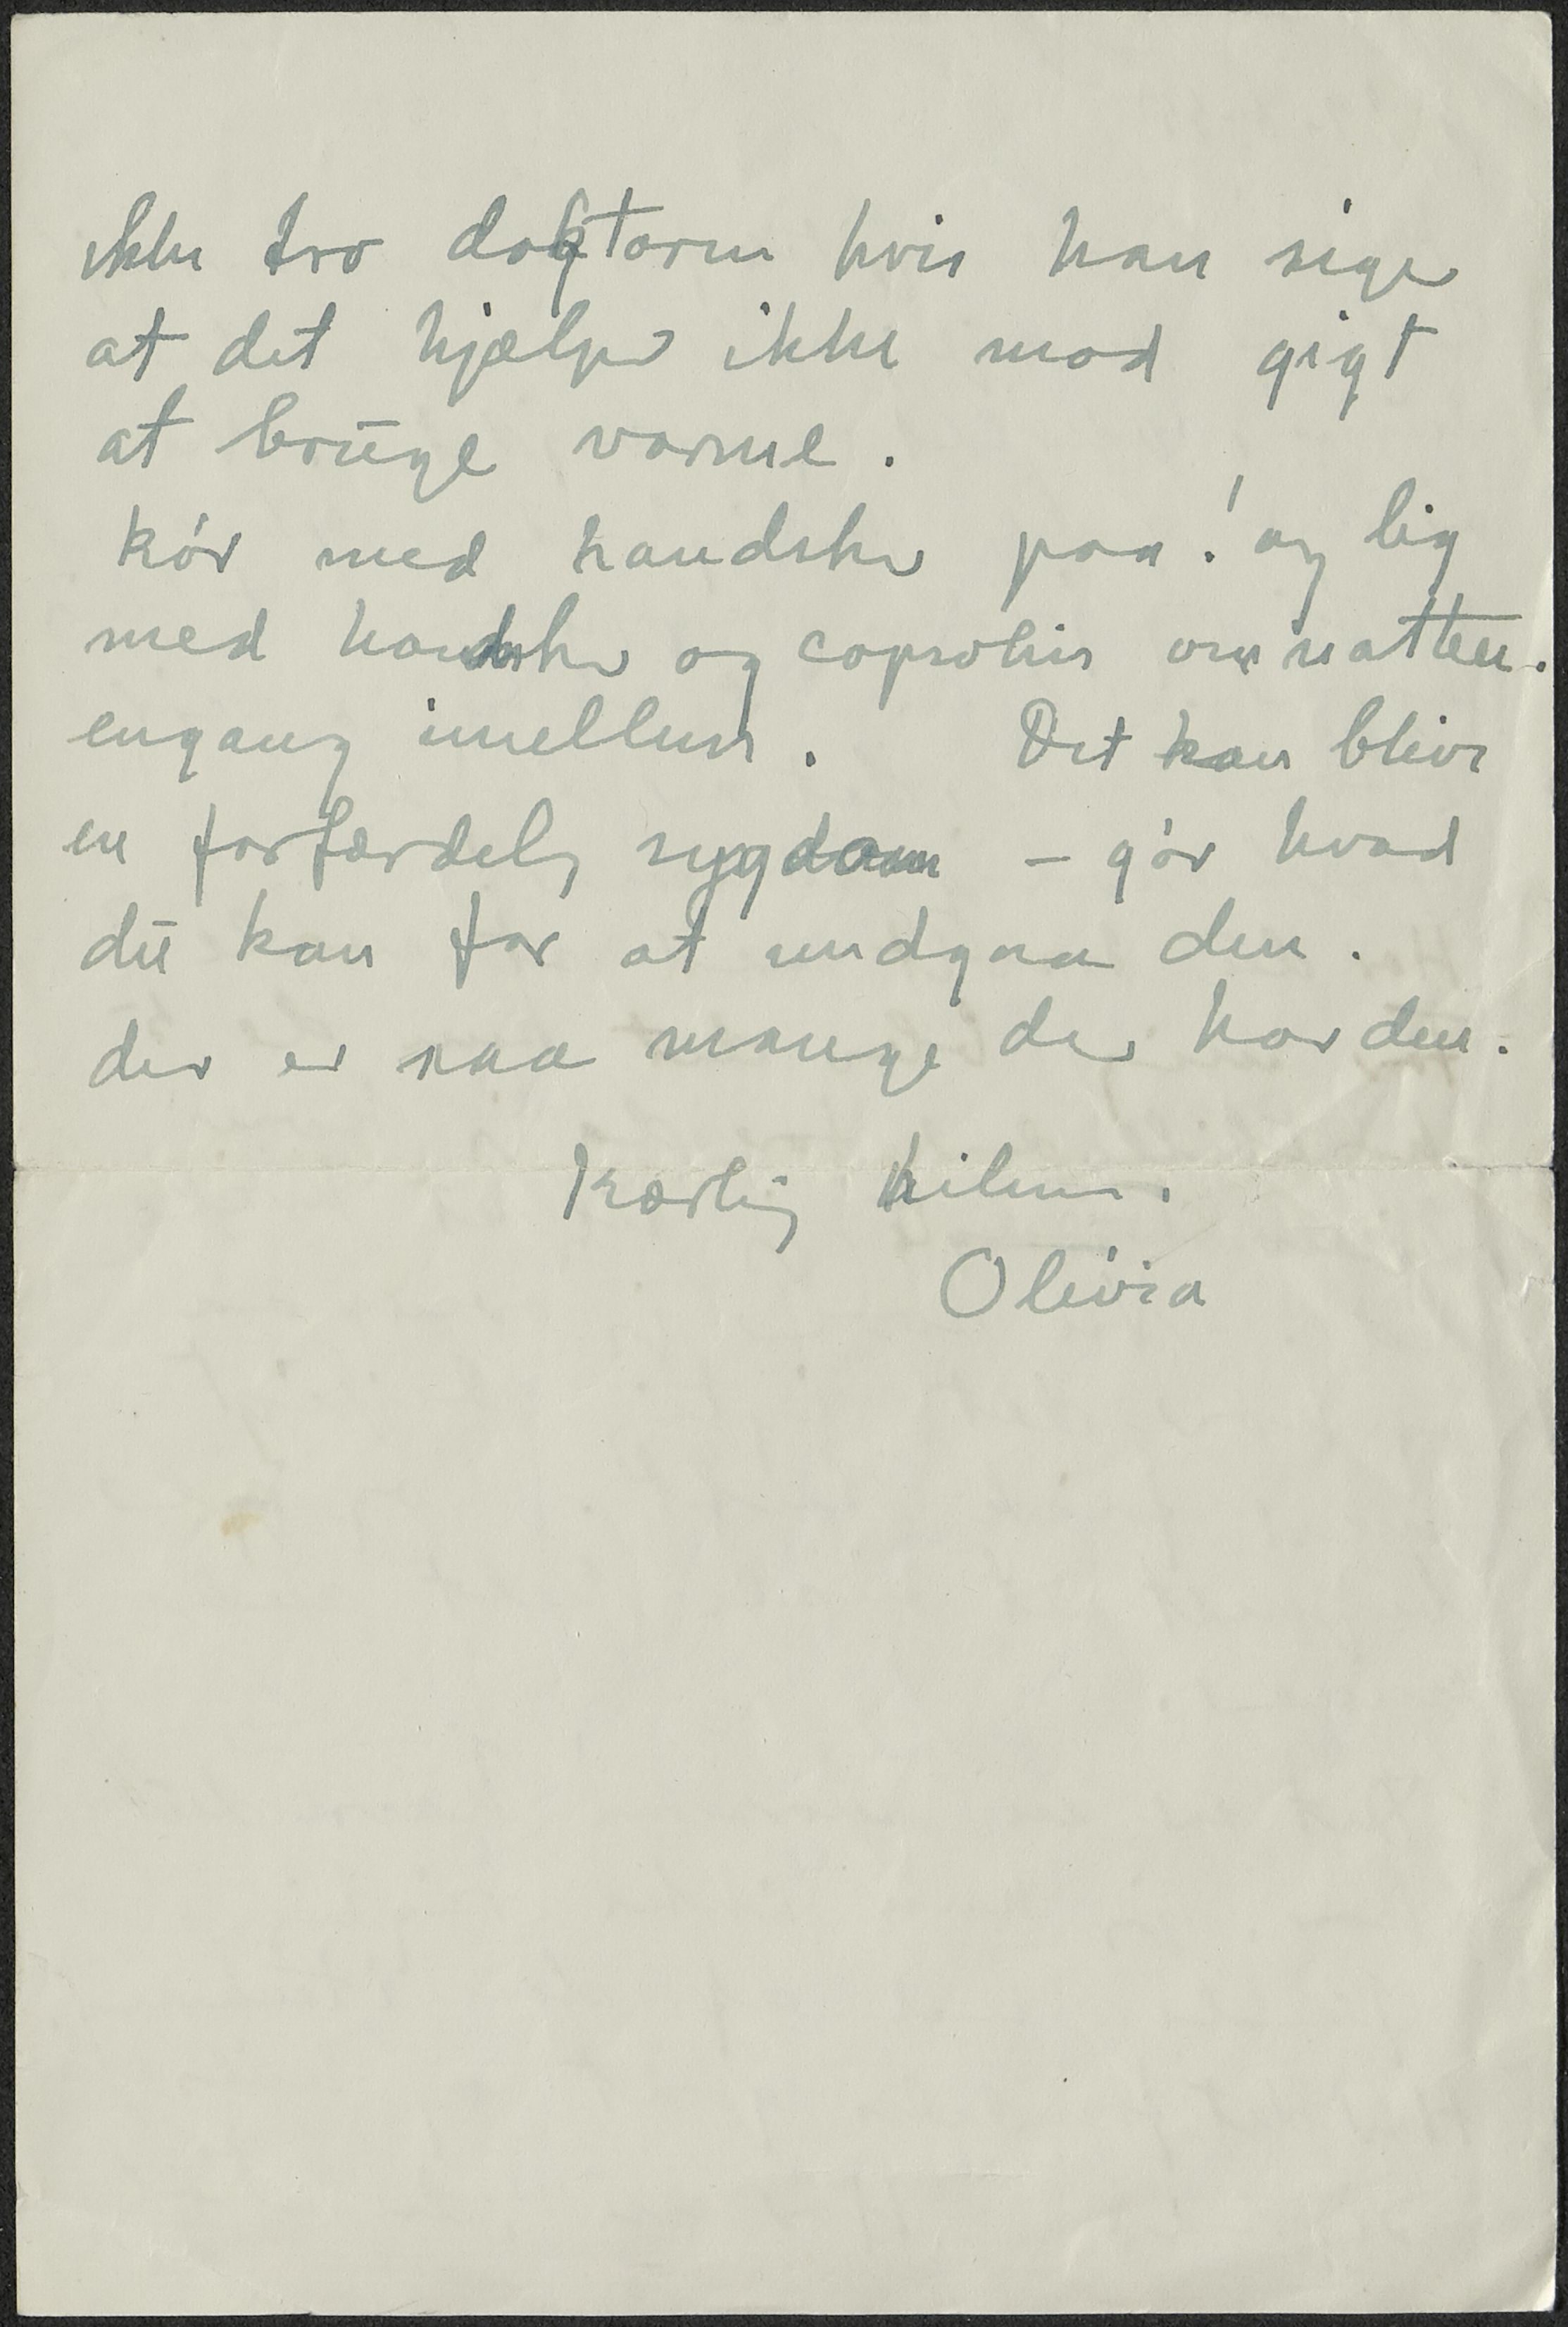 ikke tro doktoren hvis han siger
at det hjælper ikke mod gigt
at brūge varme.
kór med handsker paa! og lig
med handsker og capsolin om natten.
engang imellem. Det kan blive
en forfærdelig sygdom – gór hvad
dū kan for at undgaa den.
der er saa mange der har den.
Kærlig hilsen.
Olivia